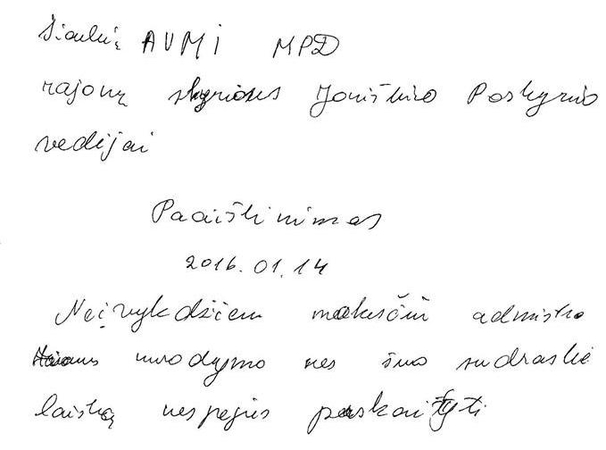 Šiaulių AVMI MPD
rajonų skyriaus Joniškio Poskyrio
vedijai
Paaiškinimas
2016.01.14
Neįvykdžiem mokesčių admistra
nurodymo nes šuo sudraskė
laišką nespėjus paskaityti